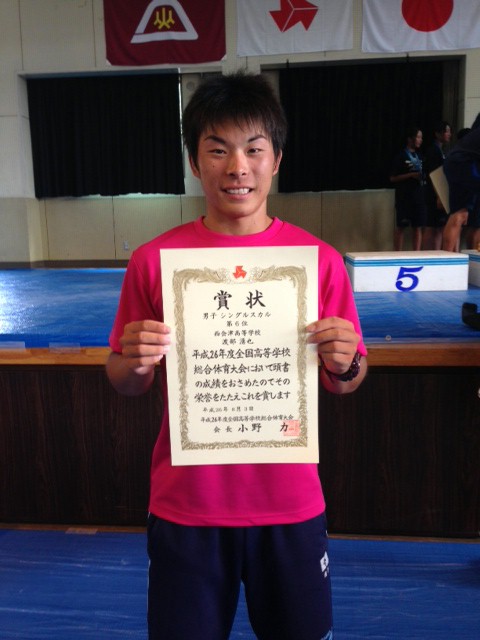 賞状
男子 シングルスカル
第6位
西会津高等学校
渡部 湧也
平成26年度全国高等学校
総合体育大会において頭書
の成績をおさめたのでその
栄誉をたたえこれを賞します
平成26年 8月 3日
平成26年度全国高等学校総合体育大会
会長 小野 力
5